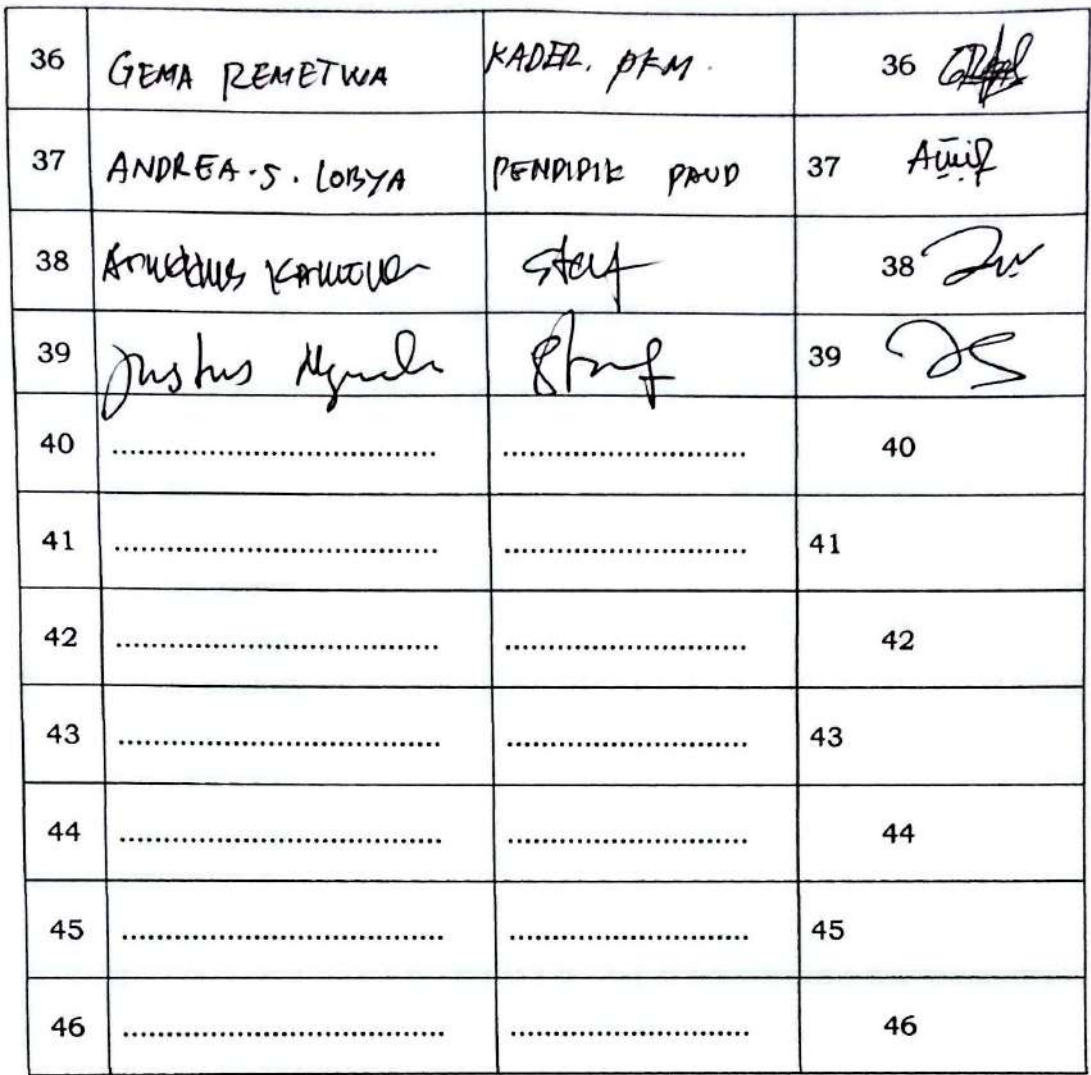 36 GEMA REMETWA KADER. PKM. 36
37 ANDREA.S. LOBYA PENDIDIK PAUD 37
38 Staf 38
39 Justus Staf 39
40 .................................. .......................... 40
41 .................................. .......................... 41
42 .................................. .......................... 42
43 .................................. .......................... 43
44 .................................. .......................... 44
45 .................................. .......................... 45
46 .................................. .......................... 46